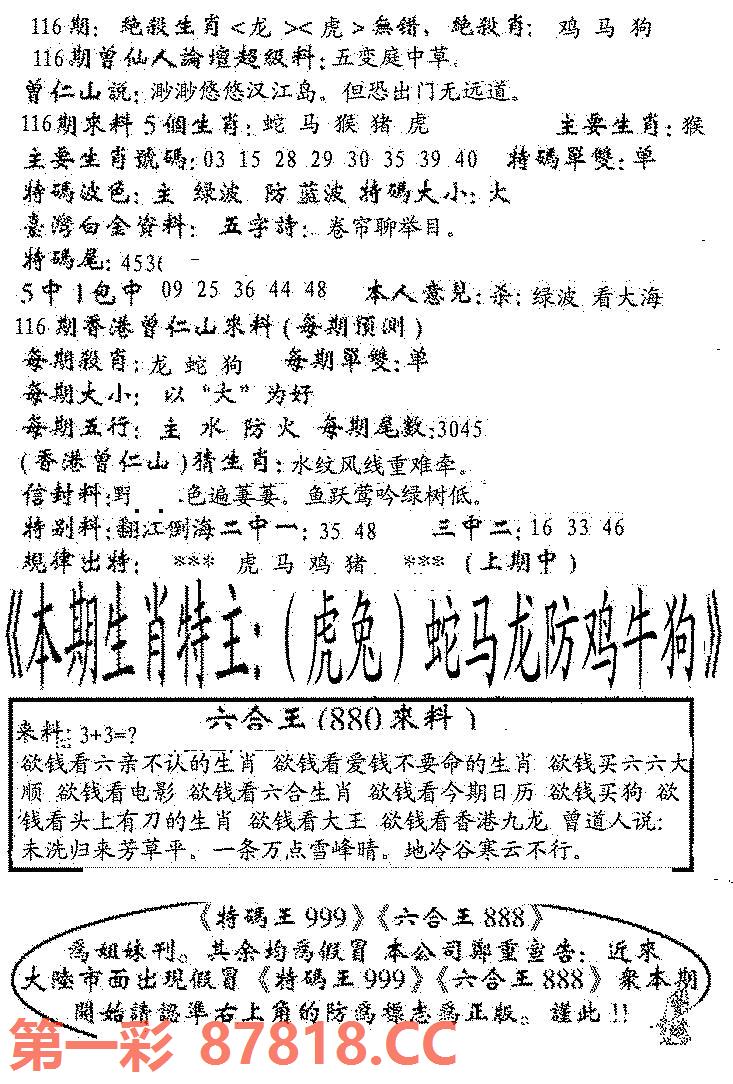 116期：絶殺生肖<龙><虎>無錯，絶殺肖：鸡 马 狗
116期曾仙人論壇超級料：五变庭中草。
曾仁山説：渺渺悠悠汉江岛。但恐出门无远道。
116期來料5個生肖：蛇 马 猴 猪 虎 主要生肖：猴
主要生肖號碼：03 15 28 29 30 35 39 40 特碼單雙：单
特碼波色：主 绿波 防 蓝波 特碼大小：大
臺灣白金資料： 五字詩：卷帘聊举目。
特碼尾：4536
5中1包中 09 25 36 44 48 本人意見：杀：绿波 看大海
116期香港曾仁山來料（每期預測）
每期殺肖：龙 蛇 狗 每期單雙：单
每期大小： 以 “大” 为好
每期五行： 主 水 防 火 每期尾数：3045
（香港曾仁山）猜生肖：水纹风线重难牵。
信封料：野 色遍萋萋。鱼跃莺吟绿树低。
特别料：翻江倒海二中一：35 48 三中二：16 33 46
規律出特： *** 虎 马 鸡 猪 *** （上期中）
《本期生肖特主：（虎兔）蛇马龙防鸡牛狗》
六合王（880來料）
来料：3+3=？
欲钱看六亲不认的生肖 欲钱看爱钱不要命的生肖 欲钱买六六大
顺 欲钱看电影 欲钱看六合生肖 欲钱看今期日历 欲钱买狗 欲
钱看头上有刀的生肖 欲钱看大王 欲钱看香港九龙 曾道人说：
未洗归来芳草平。一条万点雪峰晴。地冷谷寒云不行。
《特碼王999》《六合王888》
爲姐妹刊。其余均爲假冒 本公司鄭重宣告：近來
大陸市面出現假冒《特碼王999》《六合王888》衆本期
開始請認準右上角的防爲標志爲正版。謹此！！
第一彩 87818.CC